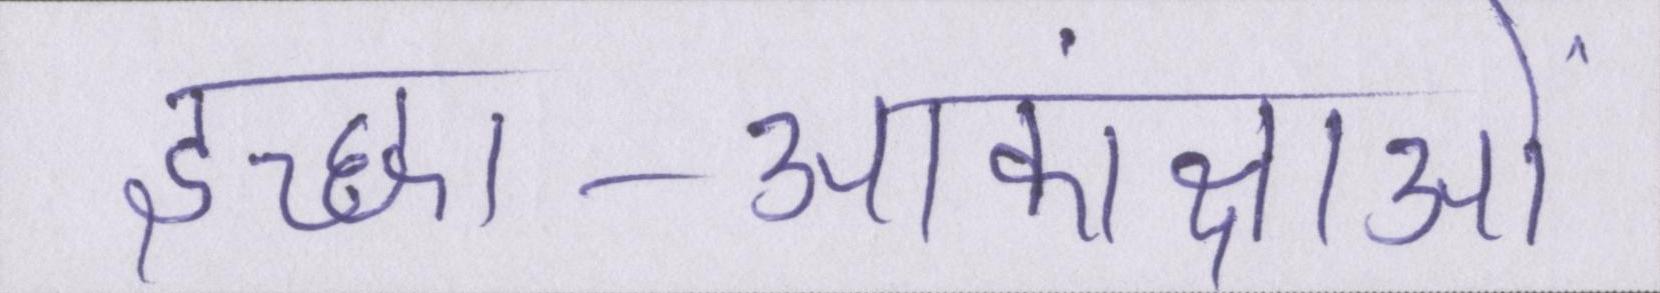 इच्छा-आकांक्षाओं